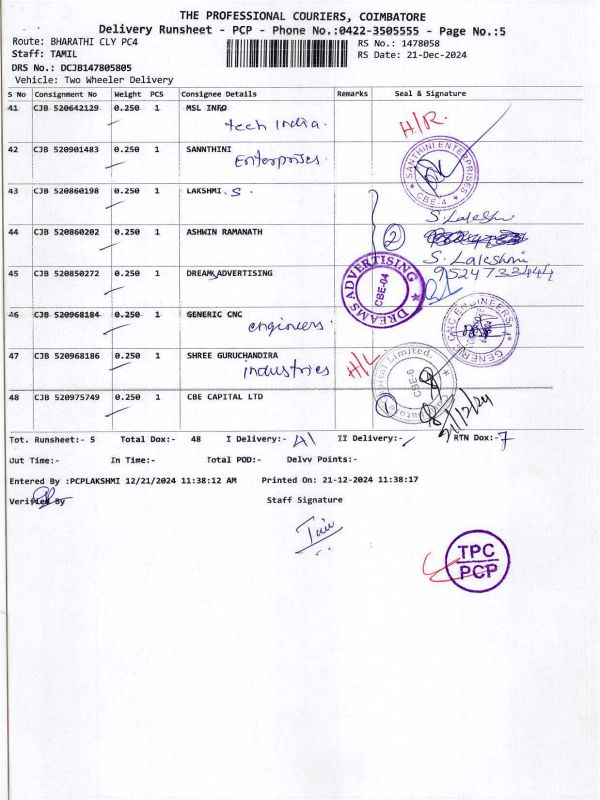 THE PROFESSIONAL COURIERS, COIMBATORE
Delivery Runsheet - PCP - Phone No.:0422-3505555 - Page No.:5
Route: BHARATHI CLY PC4 RS No.: 1478058
Staff: TAMIL RS Date: 21-Dec-2024
DRS No.: DCJB147805805
Vehicle: Two Wheeler Delivery
S No Consignment No Weight PCS Consignee Details Remarks Seal & Signature
41 CJB 520642129 0.250 1 MSL INFO
tech India. H/R.
42 CJB 520901483 0.250 1 SANNTHINI
Enterprises.
SANTHINI ENTERPRISES
CBE-4
43 CJB 520860198 0.250 1 LAKSHMI . S .
S. Laleshmi
44 CJB 520860202 0.250 1 ASHWIN RAMANATH 2
S. Laleshmi
45 CJB 520850272 0.250 1 DREAM ADVERTISING 9524733444
DREAMS ADVERTISING
CBE-04
46 CJB 520968184 0.250 1 GENERIC CNC
engineers.
GENERIC CNC ENGINEERS
47 CJB 520968186 0.250 1 SHREE GURUCHANDIRA
industries H/L
Capital Limited.
CBE-6
48 CJB 520975749 0.250 1 CBE CAPITAL LTD 1
21/12/24
Tot. Runsheet:- 5 Total Dox:- 48 I Delivery:- 41 II Delivery:- RTN Dox:- 7
Out Time:- In Time:- Total POD:- Delvv Points:-
Entered By :PCPLAKSHMI 12/21/2024 11:38:12 AM Printed On: 21-12-2024 11:38:17
Verified By Staff Signature
TPC
PCP